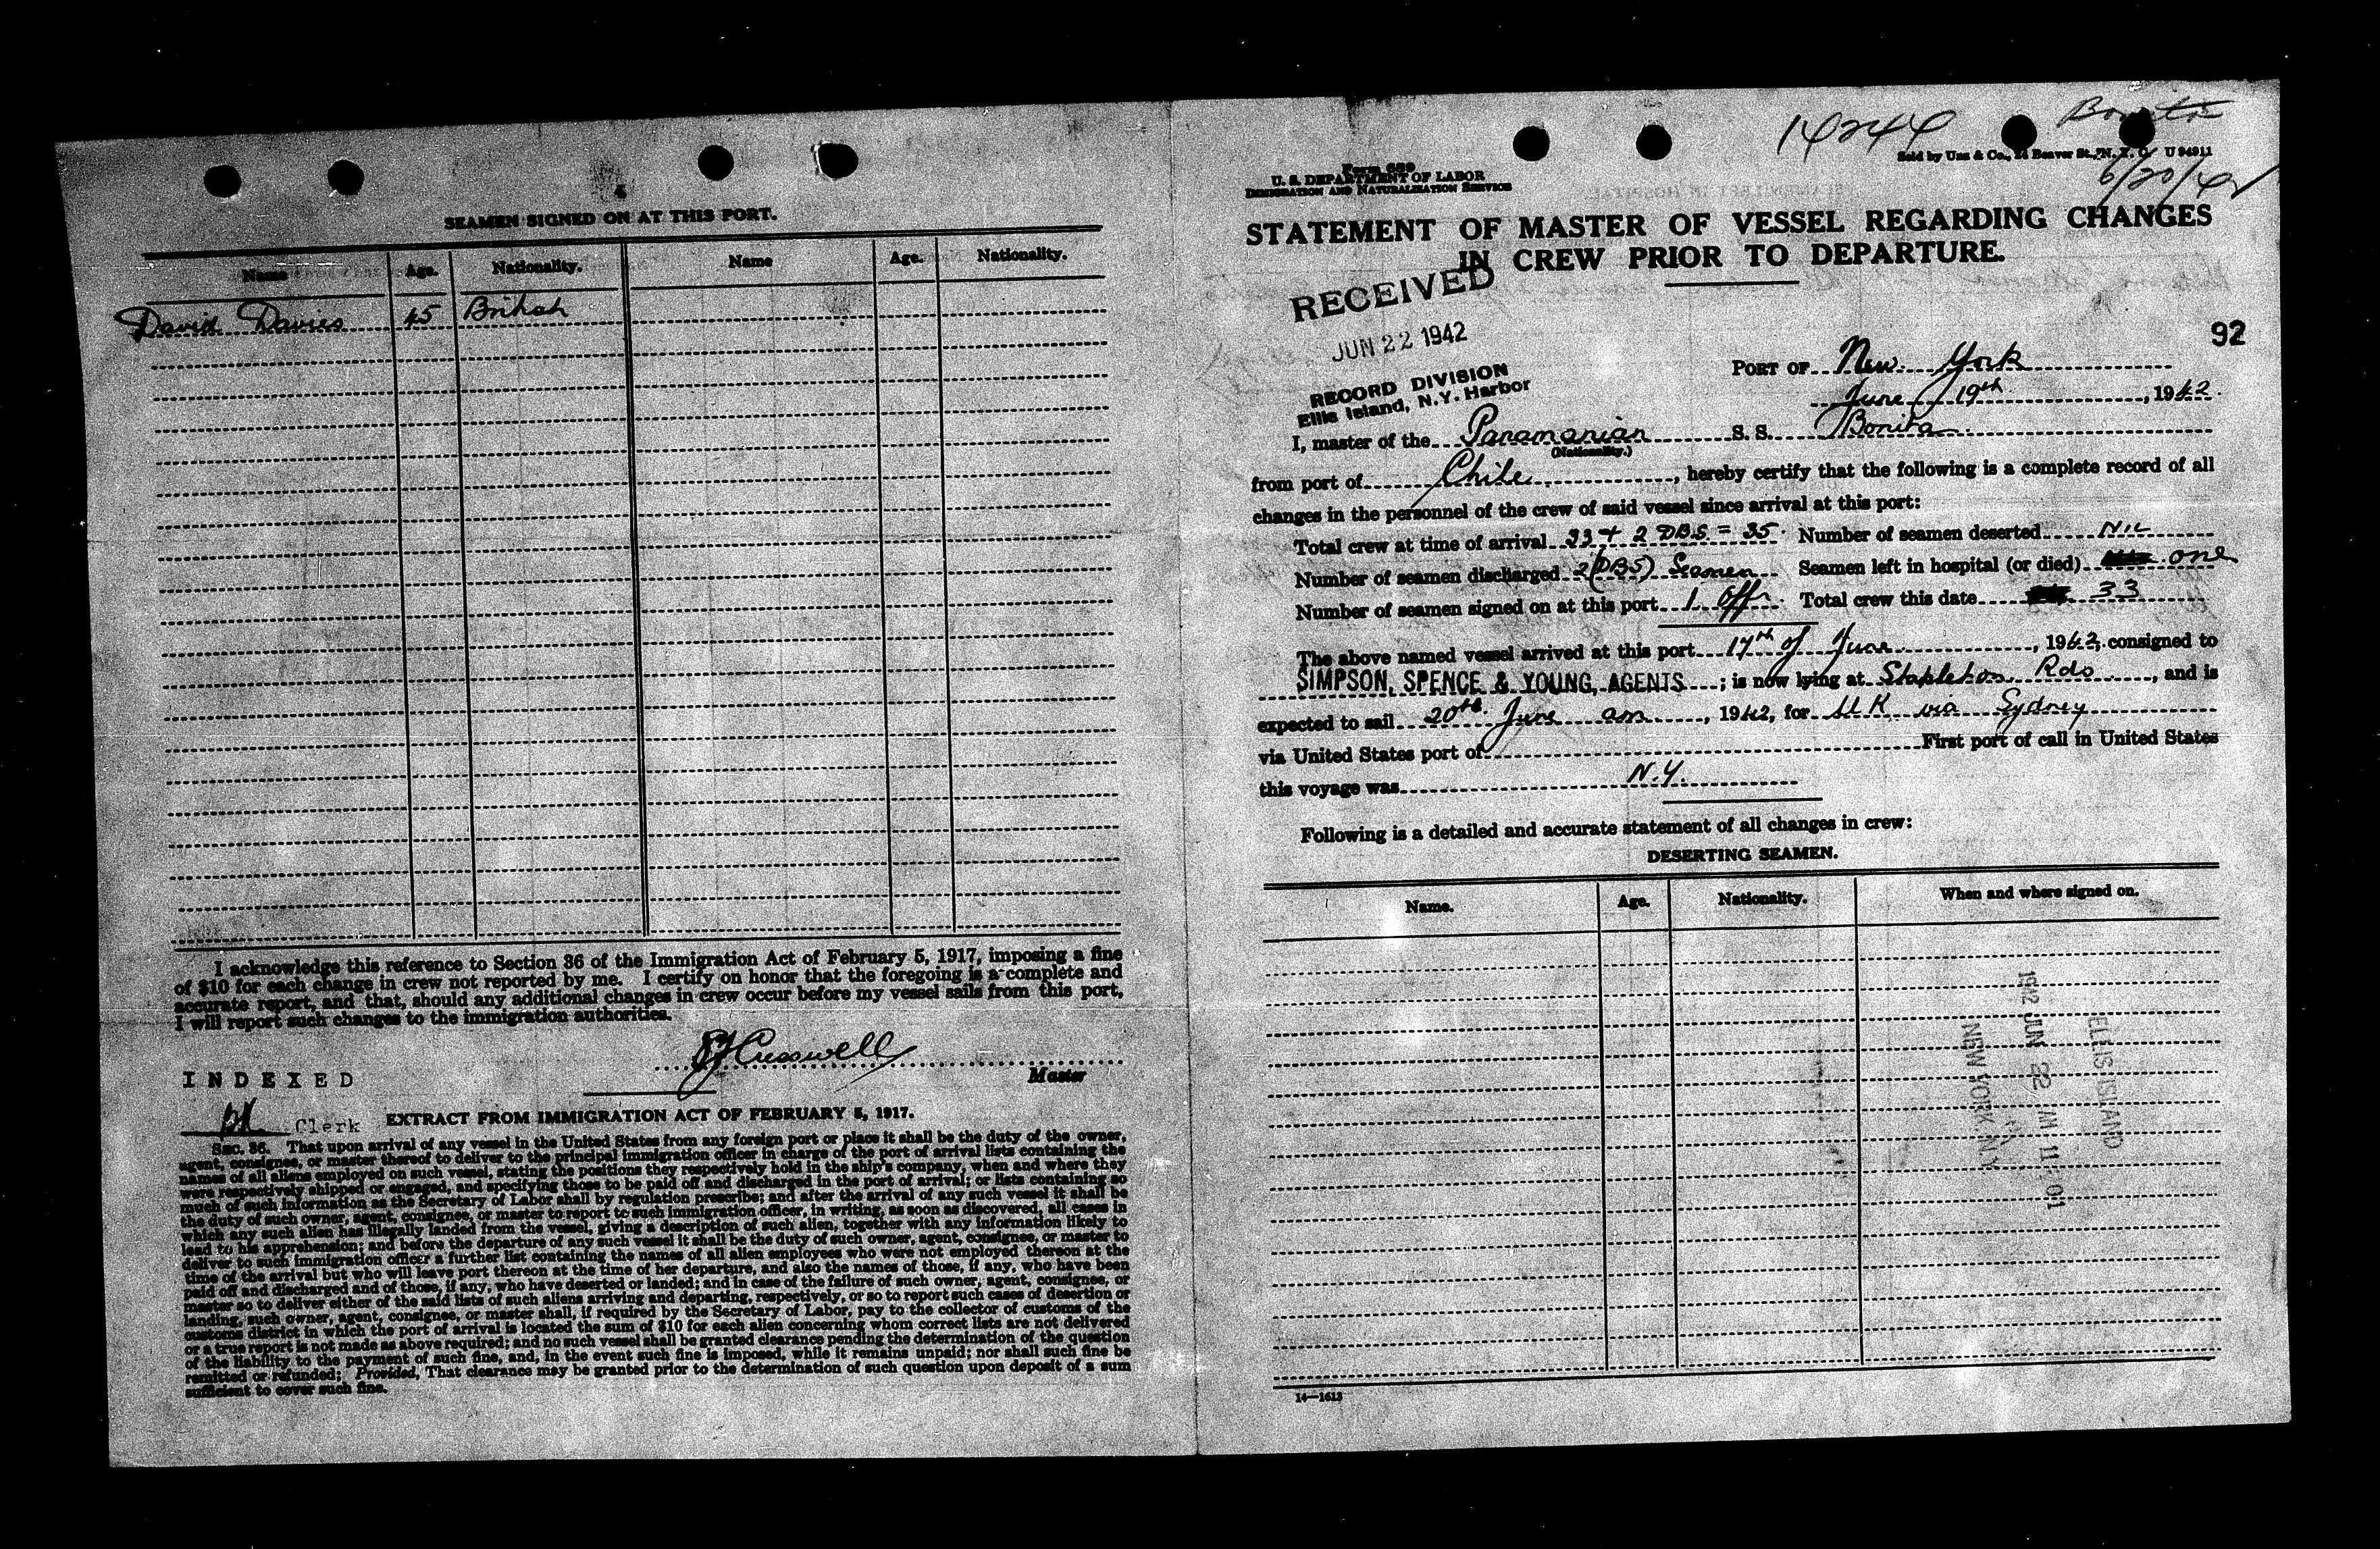 4
SEAMEN SIGNED ON AT THIS PORT.
Name Age. Nationality. Name Age. Nationality.
David Davies 45 British
I acknowledge this reference to Section 36 of the Immigration Act of February 5, 1917, imposing a fine
of $10 for each change in crew not reported by me. I certify on honor that the foregoing is a complete and
accurate report, and that, should any additional changes in crew occur before my vessel sails from this port,
I will report such changes to the immigration authorities.
Master
INDEXED
Clerk
EXTRACT FROM IMMIGRATION ACT OF FEBRUARY 5, 1917.
SEC. 36. That upon arrival of any vessel in the United States from any foreign port or place it shall be the duty of the owner,
agent, consignee, or master thereof to deliver to the principal immigration officer in charge of the port of arrival lists containing the
names of all aliens employed on such vessel, stating the positions they respectively hold in the ship's company, when and where they
were respectively shipped or engaged, and specifying those to be paid off and discharged in the port of arrival; or lists containing so
much of such information as the Secretary of Labor shall by regulation prescribe; and after the arrival of any such vessel it shall be
the duty of such owner, agent, consignee, or master to report to such immigration officer, in writing, as soon as discovered, all cases in
which any such alien has illegally landed from the vessel, giving a description of such alien, together with any information likely to
lead to his apprehension; and before the departure of any such vessel it shall be the duty of such owner, agent, consignee, or master to
deliver to such immigration officer a further list containing the names of all alien employees who were not employed thereon at the
time of the arrival but who will leave port thereon at the time of her departure, and also the names of those, if any, who have been
paid off and discharged and of those, if any, who have deserted or landed; and in case of the failure of such owner, agent, consignee, or
master so to deliver either of the said lists of such aliens arriving and departing, respectively, or so to report such cases of desertion or
landing, such owner, agent, consignee, or master shall, if required by the Secretary of Labor, pay to the collector of customs of the
customs district in which the port of arrival is located the sum of $10 for each alien concerning whom correct lists are not delivered
or a true report is not made as above required; and no such vessel shall be granted clearance pending the determination of the question
of the liability to the payment of such fine, and, in the event such fine is imposed, while it remains unpaid; nor shall such fine be
remitted or refunded: Provided, That clearance may be granted prior to the determination of such question upon deposit of a sum
sufficient to cover such fine.
14244 Bonita
Sold by Unz & Co., 24 Beaver St., N. Y. C. U 94911
6/20/42
Form 689
U. S. DEPARTMENT OF LABOR
IMMIGRATION AND NATURALIZATION SERVICE
STATEMENT OF MASTER OF VESSEL REGARDING CHANGES
IN CREW PRIOR TO DEPARTURE.
RECEIVED
JUN 22 1942
RECORD DIVISION
Ellis Island, N.Y. Harbor
92
PORT OF New York
June 19th, 1942.
I, master of the Panamanian S. S. Bonita
(Nationality.)
from port of Chile, hereby certify that the following is a complete record of all
changes in the personnel of the crew of said vessel since arrival at this port:
Total crew at time of arrival 33 + 2 DBS = 35. Number of seamen deserted NIL
Number of seamen discharged 2 (DBS) Seamen Seamen left in hospital (or died) one
Number of seamen signed on at this port 1 Offr. Total crew this date 33
The above named vessel arrived at this port 17th of June, 1942, consigned to
SIMPSON, SPENCE & YOUNG, AGENTS; is now lying at Stapleton Rds, and is
expected to sail 20th June am, 1942, for U K via Sydney
via United States port of First port of call in United States
this voyage was N.Y.
Following is a detailed and accurate statement of all changes in crew:
DESERTING SEAMEN.
Name. Age. Nationality. When and where signed on.
ELLIS ISLAND
1942 JUN 22 AM 11 01
NEW YORK N.Y
14—1613